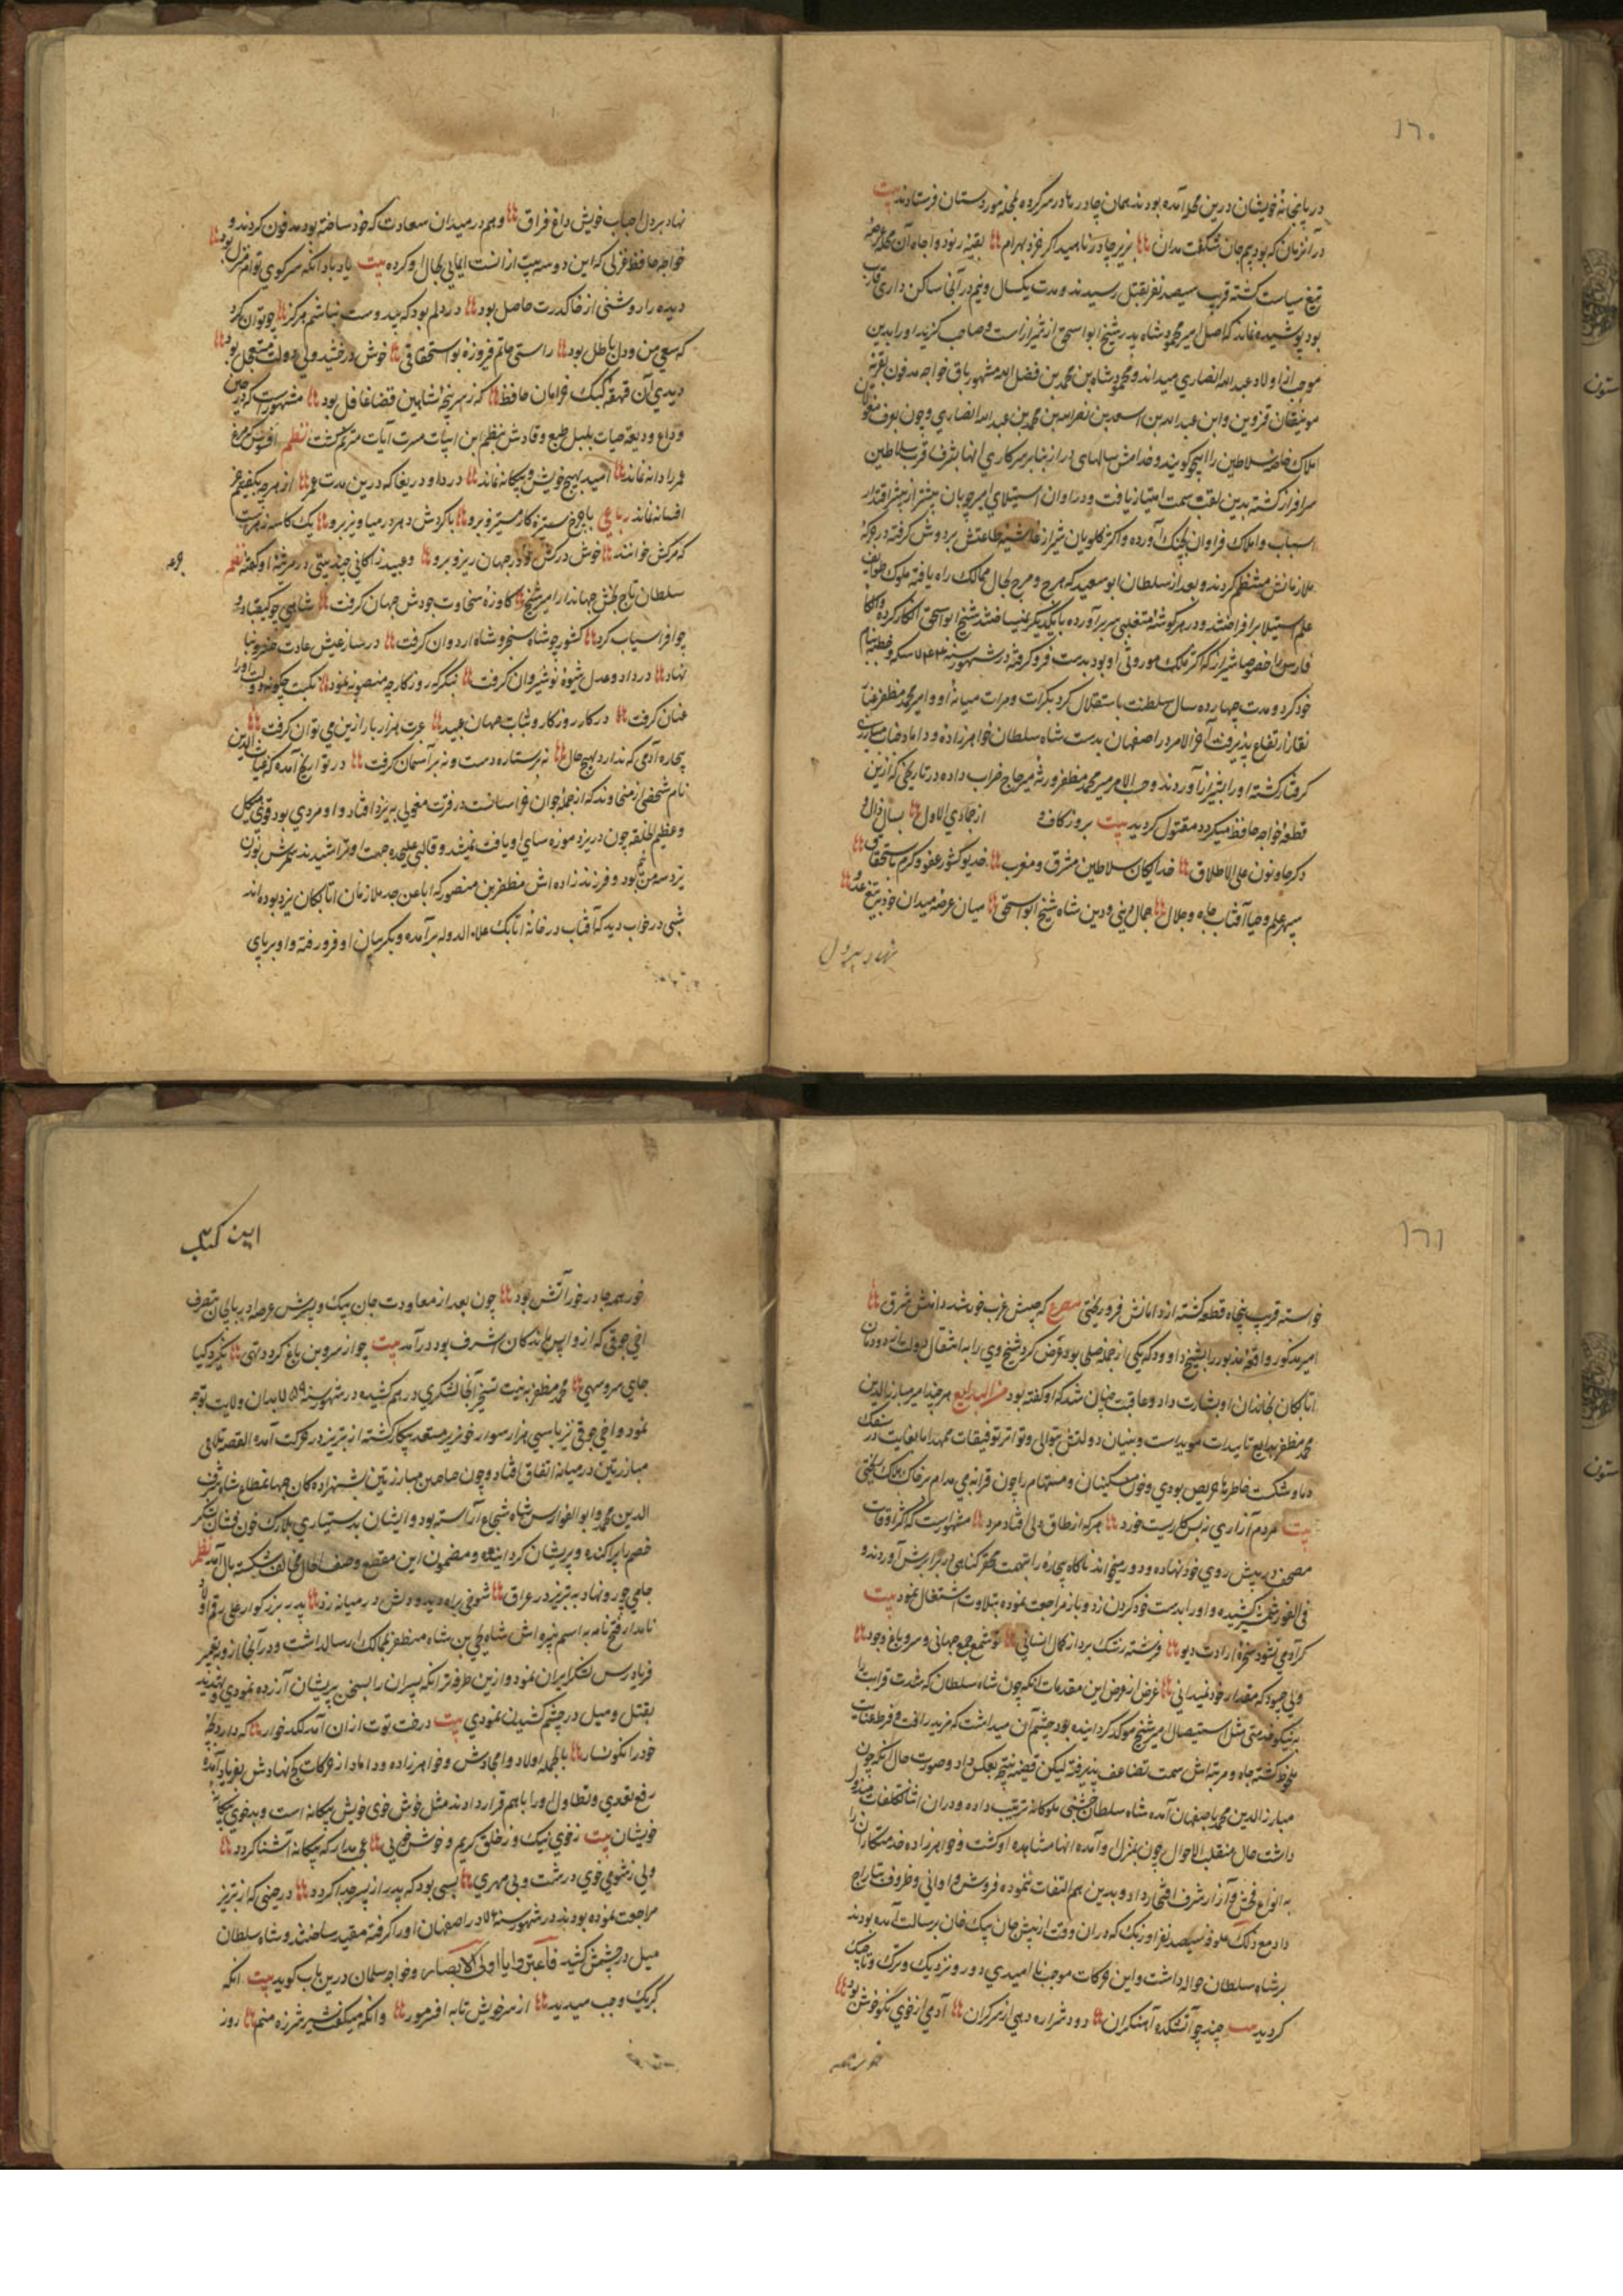 ١٦٠
در پایخانهٔ خویشان درین محل آمده بودند همان چادر را در سر کرده بمحله موردستان فرستادند بیت
در آنزمان که بود بیم جان شگفت مدان بزیر چادر ناهید اگر خزد بهرام بقیه رنود و اجامره آن محله عرضهٔ
تیغ سیاست کشته قریب سیصد نفر بقتل رسیدند و مدت یکسال و نیم در آنجا ساکن دیاری
بود پوشیده نماند که اصل امیر محمود شاه پدر شیخ ابو اسحق از شیراز است و صاحب گزیده او را بدین
موجب از اولاد عبد الله انصاری میداند و محمود شاه بن محمد بن فضل الله مشهور باق خواجه مدفون بقریه
قزوین و ابن عبد الله بن اسعد بن نصر الله بن محمد بن عبد الله انصاری و چون بعرف مغولان
املاک خاصه سلاطین را اینجو گویند و خدامش سالهای دراز بنابر سرکاری آنها بشرف قرب سلاطین
سرافراز کشته بدین لقب سمت امتیاز یافت و در اوان استیلای امیر چوپان بیشتر از پیشتر اقتدار
اسباب و املاک فراوان بچنگ آورده و اکثر کلویان شیراز غاشیه طاعتش بر دوش گرفته در جرگهٔ
ملازمانش منتظم کردند و بعد از سلطان ابو سعید که هرج و مرج بحال ممالک راه یافته ملوک طوایف
علم استیلا برافراختند و در هر گوشهٔ متغلبی سر برآورده با یکدیگر نمیساختند شیخ ابو اسحق
فارس را خصوصا شیراز که اکثر ملک موروثی او بود بدست فرو گرفته در شهور سنه ٧٤٣ سکه و خطبه بنام
خود کرد و مدت چهارده سال سلطنت باستقلال کرد بکرات و مرات میانهٔ او و امیر محمد مظفر غبار
نقار ارتفاع پذیرفت آخر الامر در اصفهان بدست شاه سلطان خواهرزاده و داماد جناب مبارزی
گرفتار کشته او را بشیراز آوردند و حسب الامر میر محمد مظفر ورثه میر حاج ضراب داده در تاریخی که ازین
قطعه خواجه حافظ میگردد مقتول گردید بیت بروز کاف و از جمادی الاول بسال ذال و
دگر جا و نون علی الاطلاق خدایگان سلاطین مشرق و مغرب خدیو کشور عفو و کرم باستحقاق
سپهر علم و حیا آفتاب جاه و جلال جمال دنیی و دین شاه شیخ ابو اسحق میان عرصه میدان خود بتیغ عدو
نهاد بر دل
نهاد بر دل احباب خویش داغ فراق و هم در میدان سعادت که خود ساخته بود مدفون کردند و
خواجه حافظ غزلی که این دو سه بیت از آنست ایمایی بحال او کرده بیت یاد باد آنکه سر کوی توام منزل بود
دیده را روشنی از خاک درت حاصل بود در دلم بود که بیدوست نباشم هرگز چتوان کرد
که سعی من و دل باطل بود راستی خاتم فیروزهٔ بو اسحقاقی خوش درخشید ولی دولت مستعجل بود
دیدی آن قهقههٔ کبک خرامان حافظ که ز سر پنجهٔ شاهین قضا غافل بود مشهور است که در حین
وداع ودیعهٔ حیات بلبل طبع وقادش بنظم این ابیات مترنم گشت نظم افسوس که مرغ
عمر را دانه نماند امید بهیچ خویش و بیگانه نماند دردا و دریغا که درین مدت عمر از هر چه بگفتیم جز
افسانه نماند رباعی با چرخ ستیزه کار مستیز و برو با گردش دهر در میاویز و برو یک کاسه زهر است
که مرگش خوانند خوش درکش و جرعه در جهان ریز و برو و عبید زاکانی چند بیتی در مرثیهٔ او گفته نظم
سلطان تاج بخش جهاندار امیر شیخ کاوازهٔ سخاوت جودش جهان گرفت شاهی چو کیقباد و
چو افراسیاب کرد کشور چو شاه سنجر و شاه اردوان گرفت در ساز عیش عادت خسرو بنا
نهاد در داد و عدل شیوهٔ نوشیروان گرفت بنگر که روزگار چه منصوبه نمود نکبت چگونه دولت او را
عنان گرفت در کار روزگار و ثبات جهان عبید عبرت هزار بار ازین می توان گرفت
بیچاره آدمی که ندارد بهیچ حال نه بر ستاره دست و نه بر آسمان گرفت در تواریخ آمده که غیاث الدین
نام شخصی از خراسانست در فترت مغولی به یزد افتاد و او مردی بود قوی هیکل
و عظیم الخلقه چون در یزد موزه سای او یافت نمیشد و قالبی علیحده جهت او تراشیدند
یزد سه من بود و فرزند زاده اش مظفر بن منصور که اباعن جد ملازمان اتابکان یزد بوده اند
شبی در خواب دید که آفتاب در خانهٔ اتابک علاء الدوله برآمده و بگریبان او فرو رفته و او برپای
١٦١
خواسته قریب پنجاه قطعه کشته از دامانش فرو ریختی مصرع که جیبش غرب خورشید و دامنش شرق
امیر مذکور واقعهٔ مذبور را بشیخ داوود که یکی از جمله صلحا بود عرض کرد شیخ وی را به انتقال دولت از دودمان
اتابکان بخاندان او بشارت داد و عاقبت چنان شد که او گفته بود هر چند امیر مبارز الدین
محمد مظفر بتایید تاییدات موید است و بنیان دولتش بتوالی و تواتر توفیقات ممهد اما بغایت در سفک
دما و شکست خاطرها حریص بودی و خون مسکینان و مستهام را چون قرابهٔ می مدام بر خاک ریختی
بیت مردم آزاری نه بس کاریست خورد هر که از طاق دلی افتاد مرد مشهور است که اکثر اوقات
مصحف در پیش روی خود نهاده و در میخواند ناگاه بیچارهٔ را بتهمت محقر گناهی در برابرش آوردندی
فی الفور شمشیر کشیده و او را بدست خود گردن زد و باز مراجعت نموده بتلاوت اشتغال نمود بیت
گر آدمی نشود سخرهٔ ارادت دیو فرشته رشک برد از کمال انسانی تو شمع جمع جهانی و سرو باغ وجود
ولی چسود که مقدار خود نمیدانی غرض از عرض این مقدمات آنکه چون شاه سلطان که شدت قرابت را
به نیکو خدمتی مثل استیصال امیر شیخ موکد گردانیده بود چشم آن میداشت که بمزید رافت و فرط عنایت
ملحوظ گشته جاه و مرتبه اش سمت تضاعف پذیرفته لیکن قضیه نتیجه بعکس داد و صورت حال آنکه چون
مبارز الدین محمد باصفهان آمده شاه سلطان جشنی ملوکانه ترتیب داده و در آن اثنا تکلفات مبذول
داشت حال منقلب الاحوال چون بمنزل او آمده آنها مشاهده او گشت و خواهرزاده خدمتگار آن را
به انواع فحش و آزار شرف افتخار داد و بدین هم التفات ننموده فروش و اوانی و ظروف بتاراج
داد مع ذلک علوفهٔ سیصد نفر اوزبک که در آن وقت از پیش جان بیک خان برسالت آمده بودند
بر شاه سلطان حواله داشت و این حرکات موجب ناامیدی دور و نزدیک و ترک و تاجیک
گردید بیت چند چو آتشکده آهنگران دود و شراره دهی از سر گران آدمی از خوی نکو خوش بود
خورهمه
این کتاب
خور همه جا در خور آتش بود چون بعد از معاودت جان بیک و پسرش عرصهٔ اذربایجان بتصرف
اخی جوقی که از واپس ماندگان اشرف بود در آمد بیت چو از سروبن باغ گردد تهی بگیرد گیا
جای سرو سهی محمد مظفر به نیت تسخیر آنجا لشکری درهم کشیده در شهور سنه ٧٥٩ بدان ولایت توجه
نمود و اخی جوقی نیز با سی هزار سوار خونریز مستعد پیکار گشته از تبریز در حرکت آمد القصه تلاقی
مبارزتین در میانه اتفاق افتاد و چون جناحین مبارزتین بشهزادگان جهانمطاع شاه شرف
الدین محمد و ابو الفوارس شاه شجاع آراسته بود و ایشان بدستیاری بلارک خون فشان لشکر
خصم را پراکنده و پریشان گردانیده و مضمون این مقطع وصف الحال مخالف شکسته بال آمد نظم
جامی چو رو نهاد به تبریز در عراق شوخی براه دید و دلش در میانه زد پدر بزرگوار علی رقم اولاد
نامدار فتح نامه به اسم نبیره اش شاه یحیی بن شاه مظفر بممالک ارسال داشت و در آنجا از وی تعبیر
فریادرس لشکر ایران نمود و ازین طرفه تر آنکه پسران را بسخن پریشان آزرده نمودی و تهدید
بقتل و میل در چشم کشیدن نمودی بیت درخت توت از آن آمد لگد خوار که دارد بچهٔ
خود را نگونسار بالجمله اولاد و امجادش و خواهرزاده و داماد از حرکات کج نهادش بفریاد آمده
رفع تعدی و تطاول او را با هم قرار دادند مثل خوش خوی خویش بیگانه است و بدخوی بیگانهٔ
خویشان بیت ز خوی نیک و ز خلق کریم و خوش سخنی عجب مدار که بیگانه آشنا گردد
ولی ز شومی خوی درشت و بی مهری بسی بود که پدر از پسر جدا گردد در حینی که از تبریز
مراجعت نموده بودند در شهور سنه ٧٦٠ در اصفهان او را گرفته مقید ساختند و شاه سلطان
میل در چشمش کشید فاعتبروا یا اولی الابصار و خواجه سلمان درین باب گوید بیت آنکه
گریک وجب میدید از سر خویش تا به افسر هور و آنکه میگفت شیر شرزه منم روز